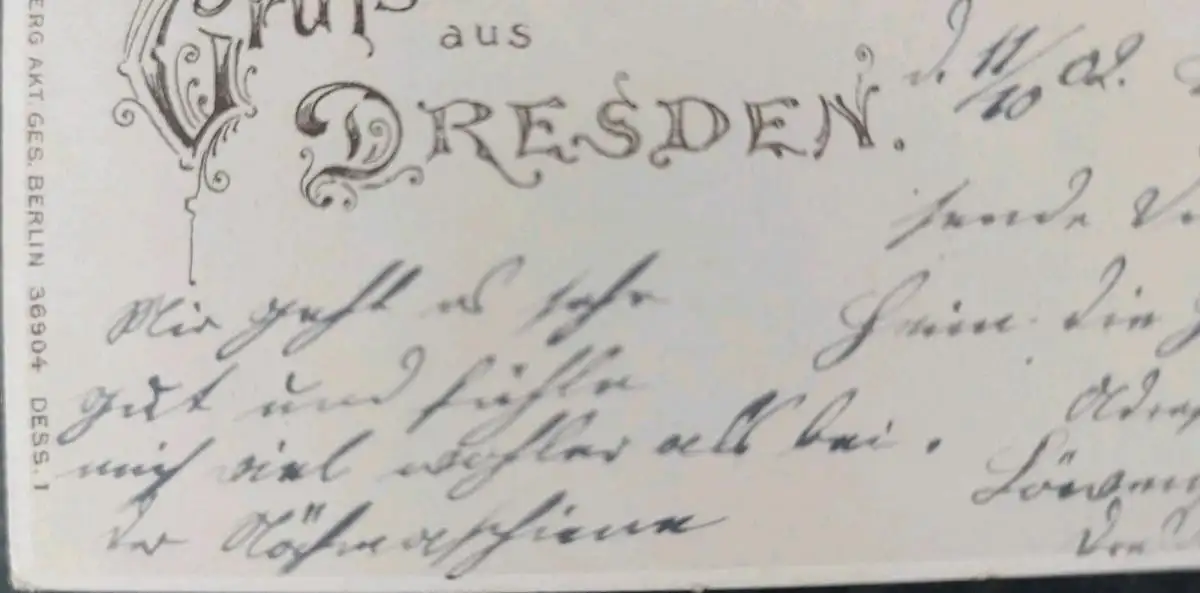 Gruß
aus
DRESDEN.
d. 11/10 02.
Mir geht es sehr
gut und fühle
mich viel wohler als bei
der Nähmaschiene
sende
Heim die
Löwen
ERG AKT. GES. BERLIN 36904 DESS. 1